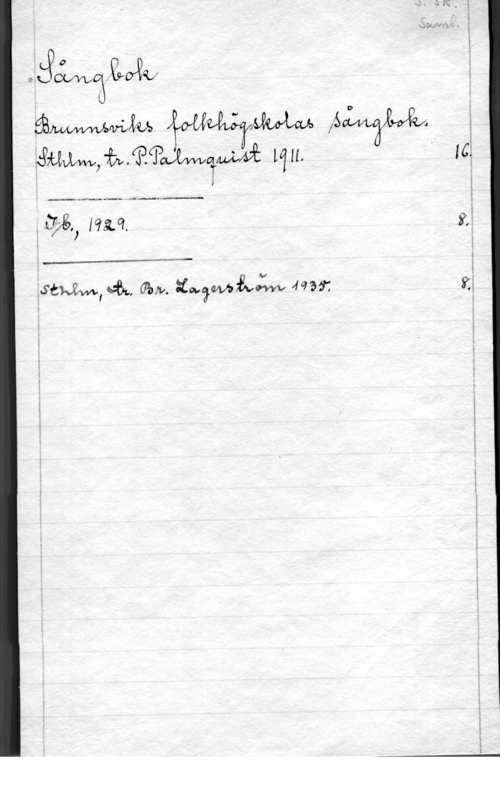 S. Sk.
Saml.
Sångbok
Brunnsviks folkhögskolas sångbok.
Sthlm, tr. P. Palmquist 1911. 16.
Ib., 1929. 8.
Sthlm, tr. Br. Lagerström 1935. 8.